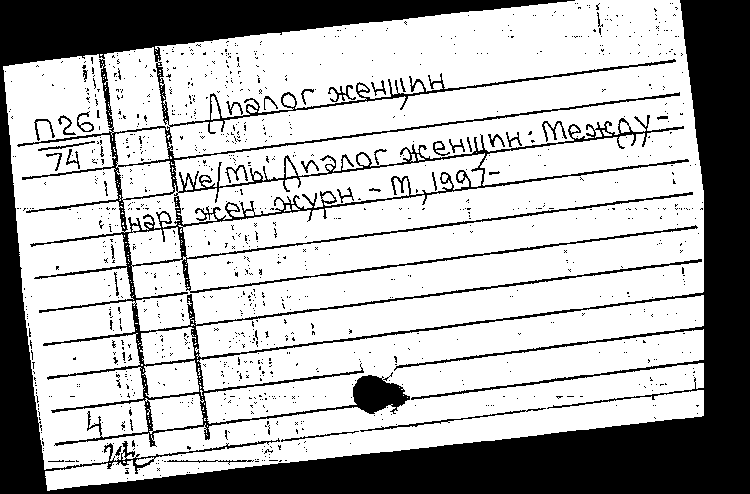 Диалог женщин
П26
74
We/Мы. Диалог женщин: Между-
нар. жен. журн. - М., 1997-
4